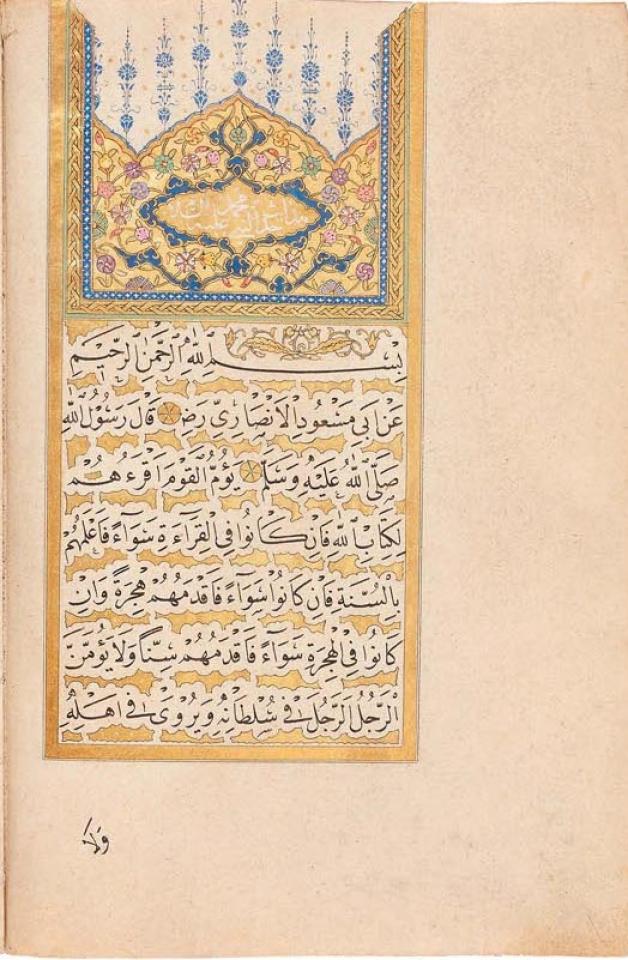 بِسْمِ اللّٰهِ الرَّحْمٰنِ الرَّحِيْمِ
عَنْ اَبِي مَسْعُودٍ الْاَنْصَارِيِّ رَضِ قَالَ رَسُولُ اللّٰهِ
صَلَّى اللّٰهُ عَلَيْهِ وَسَلَّمَ يَؤُمُّ الْقَوْمَ اَقْرَءُهُمْ
لِكِتَابِ اللّٰهِ فَاِنْ كَانُوا فِي الْقِرَآءَةِ سَوَآءً فَاَعْلَمُهُمْ
بِالسُّنَّةِ فَاِنْ كَانُوا سَوَآءً فَاَقْدَمُهُمْ هِجْرَةً وَاِنْ
كَانُوا فِي الْهِجْرَةِ سَوَآءً فَاَقْدَمُهُمْ سِنًّا وَلَا يَؤُمَّنَّ
الرَّجُلُ الرَّجُلَ فِي سُلْطَانِهِ وَيُرْوٰى فِي اَهْلِهِ
وَلَا